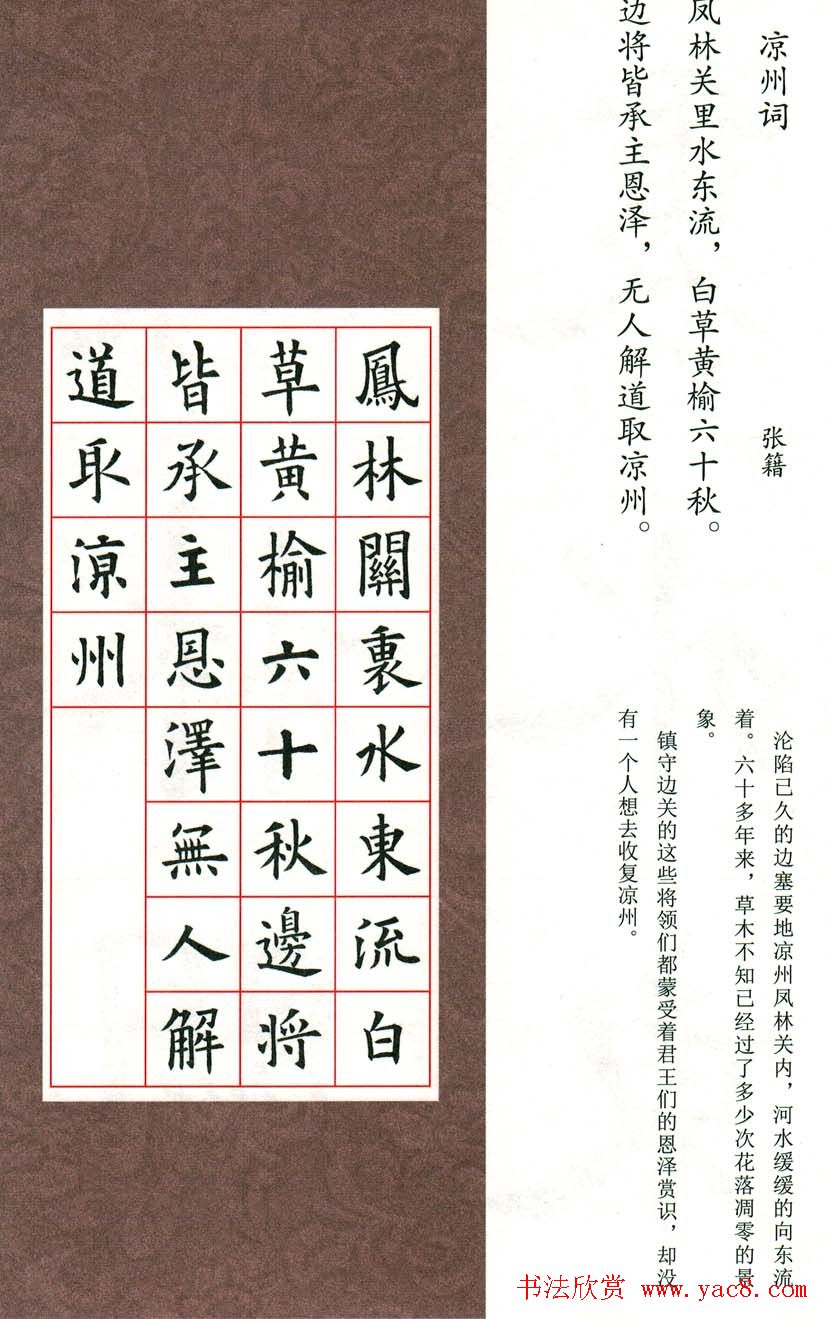 凉州词
张籍
凤林关里水东流，白草黄榆六十秋。
边将皆承主恩泽，无人解道取凉州。
沦陷已久的边塞要地凉州凤林关内，河水缓缓的向东流
着。六十多年来，草木不知已经过了多少次花落凋零的景
象。
镇守边关的这些将领们都蒙受着君王们的恩泽赏识，却没
有一个人想去收复凉州。
鳳林關裏水東流白
草黄榆六十秋邊將
皆承主恩澤無人解
道取涼州
书法欣赏 www.yac8.com